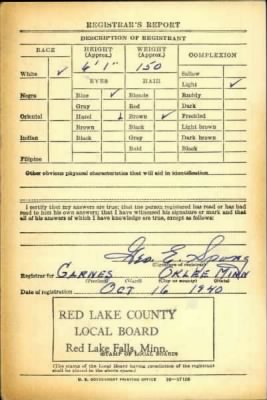 REGISTRAR'S REPORT
DESCRIPTION OF REGISTRANT
RACE HEIGHT (Approx.) WEIGHT (Approx.) COMPLEXION
White ✓ 6' 1" 150 Sallow
EYES HAIR Light ✓
Negro Blue ✓ Blonde Ruddy
Gray Red Dark
Oriental Hazel Brown ✓ Freckled
Brown Black Light brown
Indian Black Gray Dark brown
Bald Black
Filipino
Other obvious physical characteristics that will aid in identification
I certify that my answers are true; that the person registered has read or has had
read to him his own answers; that I have witnessed his signature or mark and that
all of his answers of which I have knowledge are true, except as follows:
Geo. E.
(Signature of registrar)
Registrar for GARNES OKLEE MINN
(Precinct) (City or county) (State)
Date of registration OCT 16 1940
RED LAKE COUNTY
LOCAL BOARD
Red Lake Falls, Minn.
(STAMP OF LOCAL BOARD)
(The stamp of the Local Board having jurisdiction of the registrant
shall be placed in the above space.)
U. S. GOVERNMENT PRINTING OFFICE 16—17105